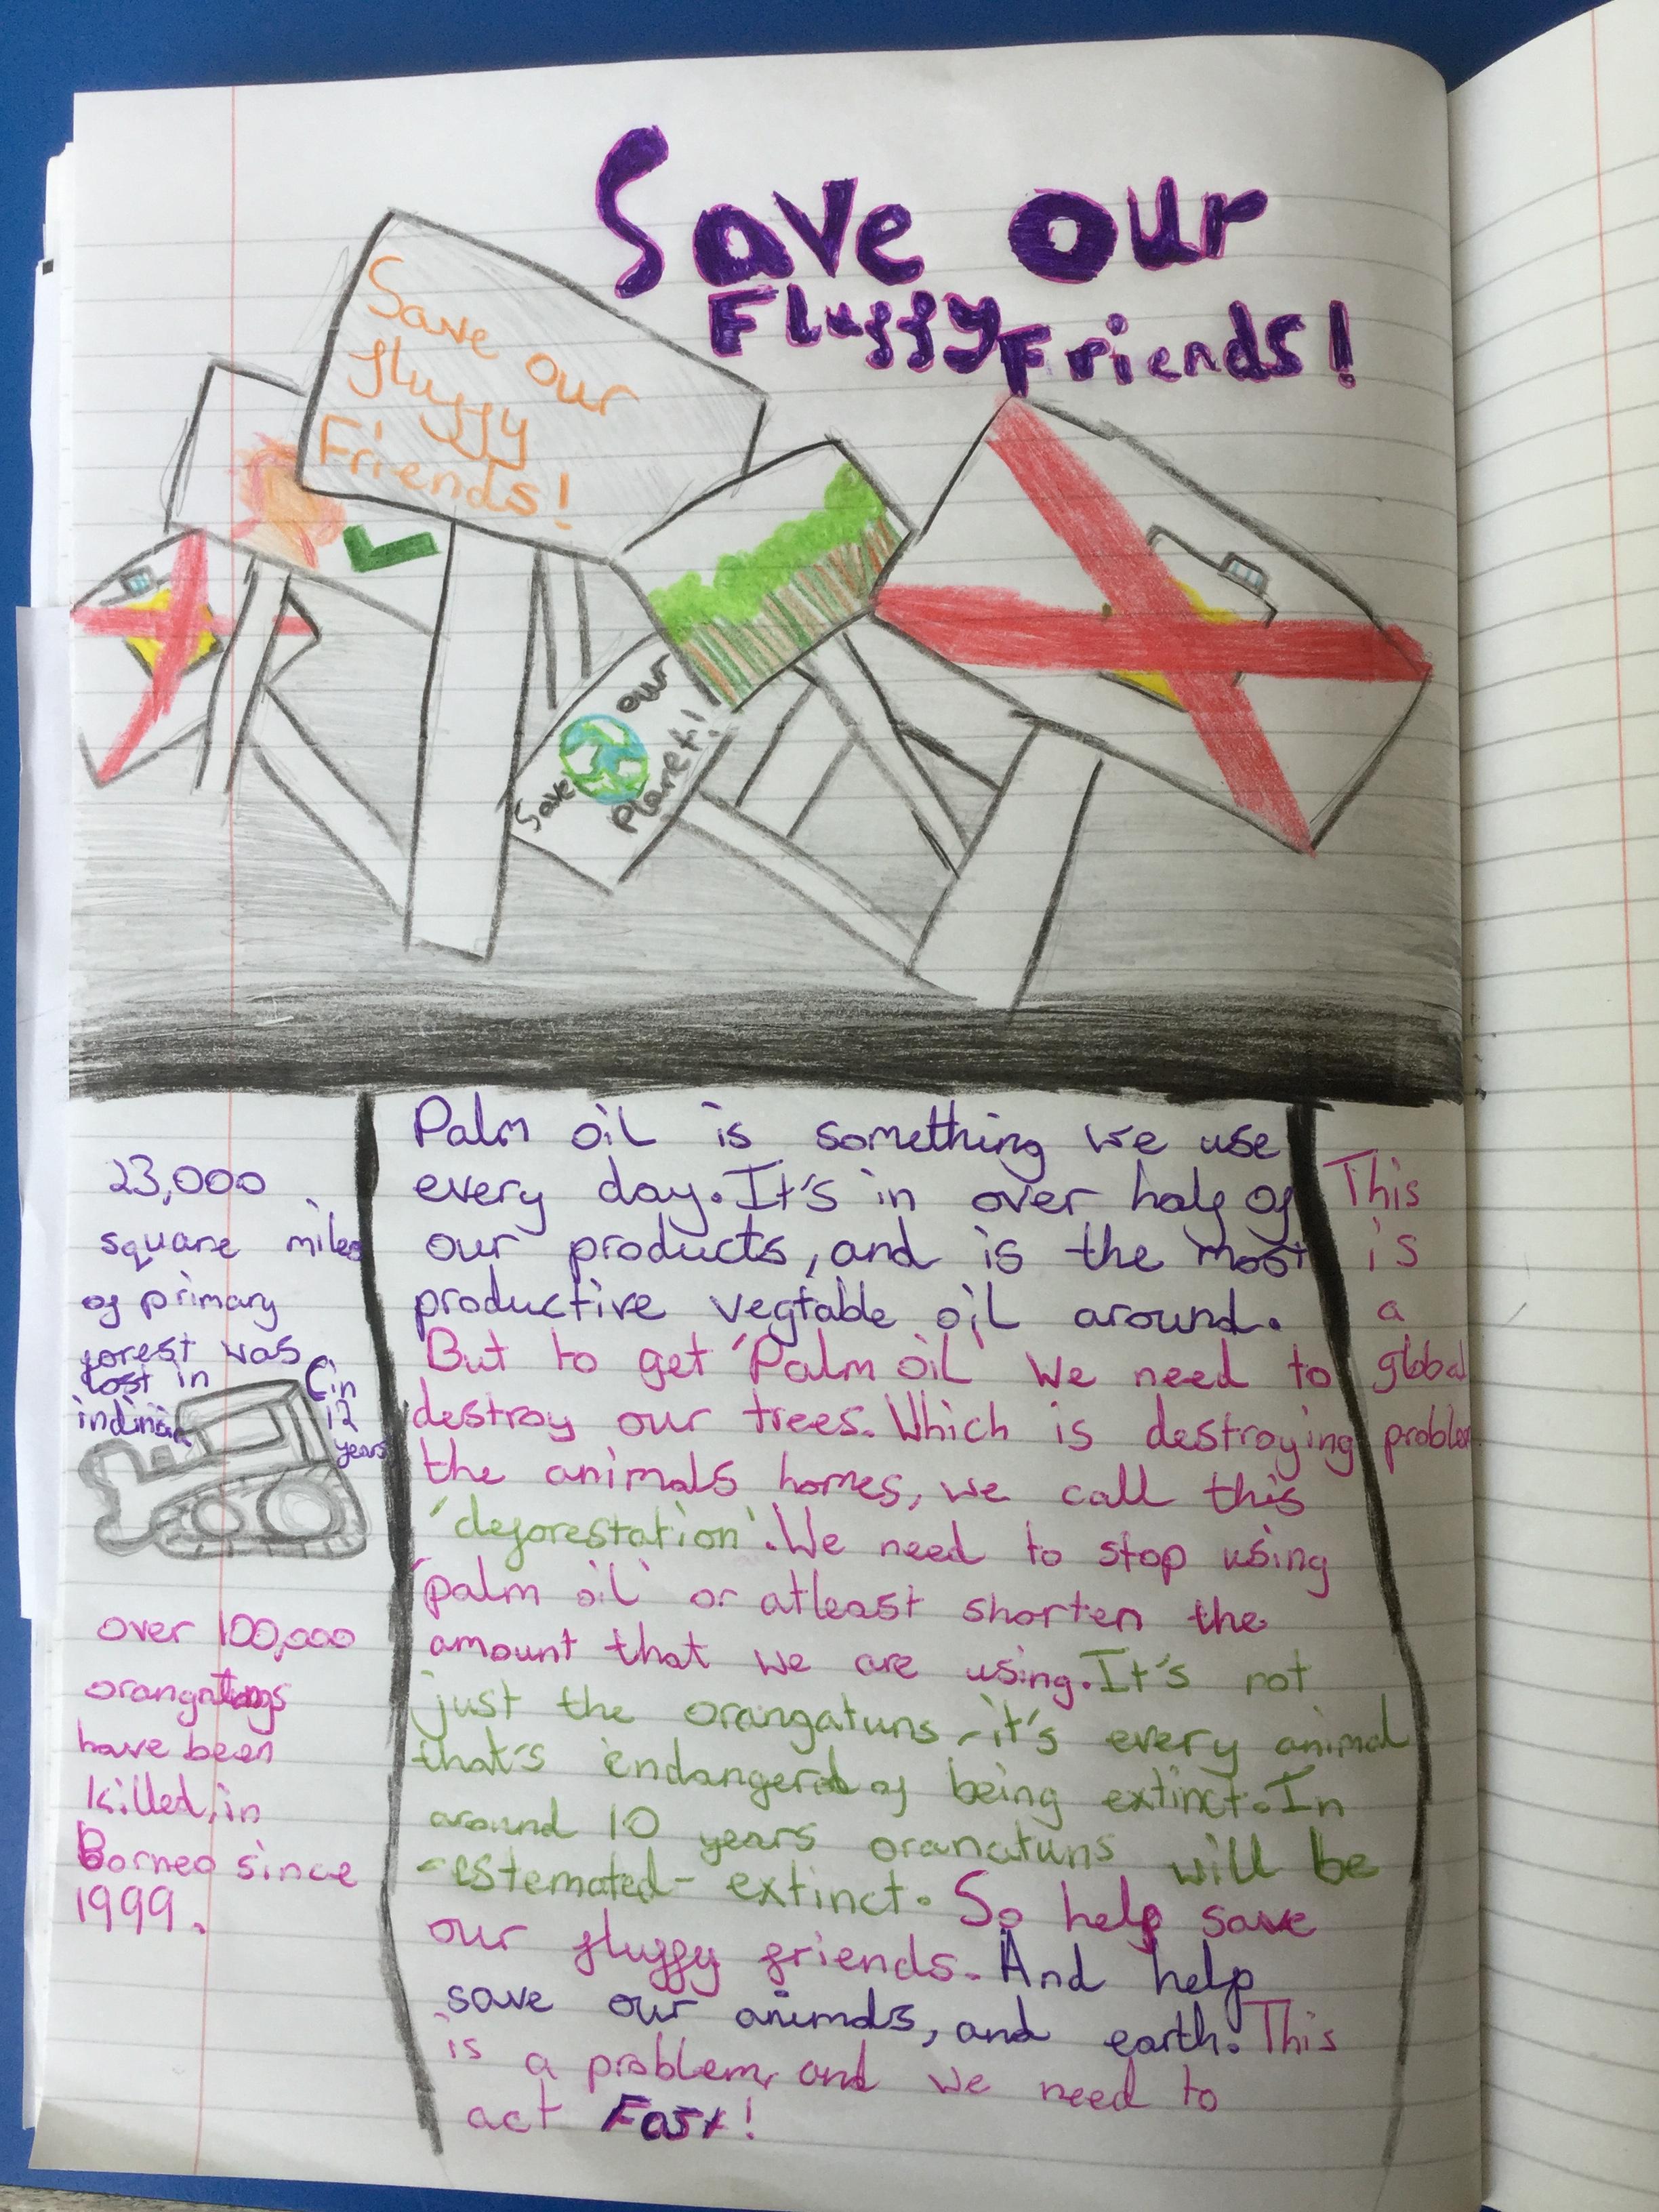 Save our
Fluffy Friends!
Save our
fluffy
Friends!
Save our
Planet!
23,000
square miles
of primary
forest was
lost in
(in
12
years
over 100,000
have been
killed, in
Borneo since
1999.
Palm oil is something we use
every day. It's in over half of
our products, and is the most
productive vegtable oil around.
But to get 'Palm oil' we need to
destroy our trees. Which is destroying
the animals homes, we call this
'deforestation'. We need to stop using
'palm oil' or atleast shorten the
amount that we are using. It's not
just the orangatuns - it's every animal
that's endangered of being extinct. In
around 10 years orancatuns will be
-estemated- extinct. So help save
our fluffy friends. And help
save our animals, and earth. This
is a problem, and we need to
act Fast!
This
is
a
global
problem